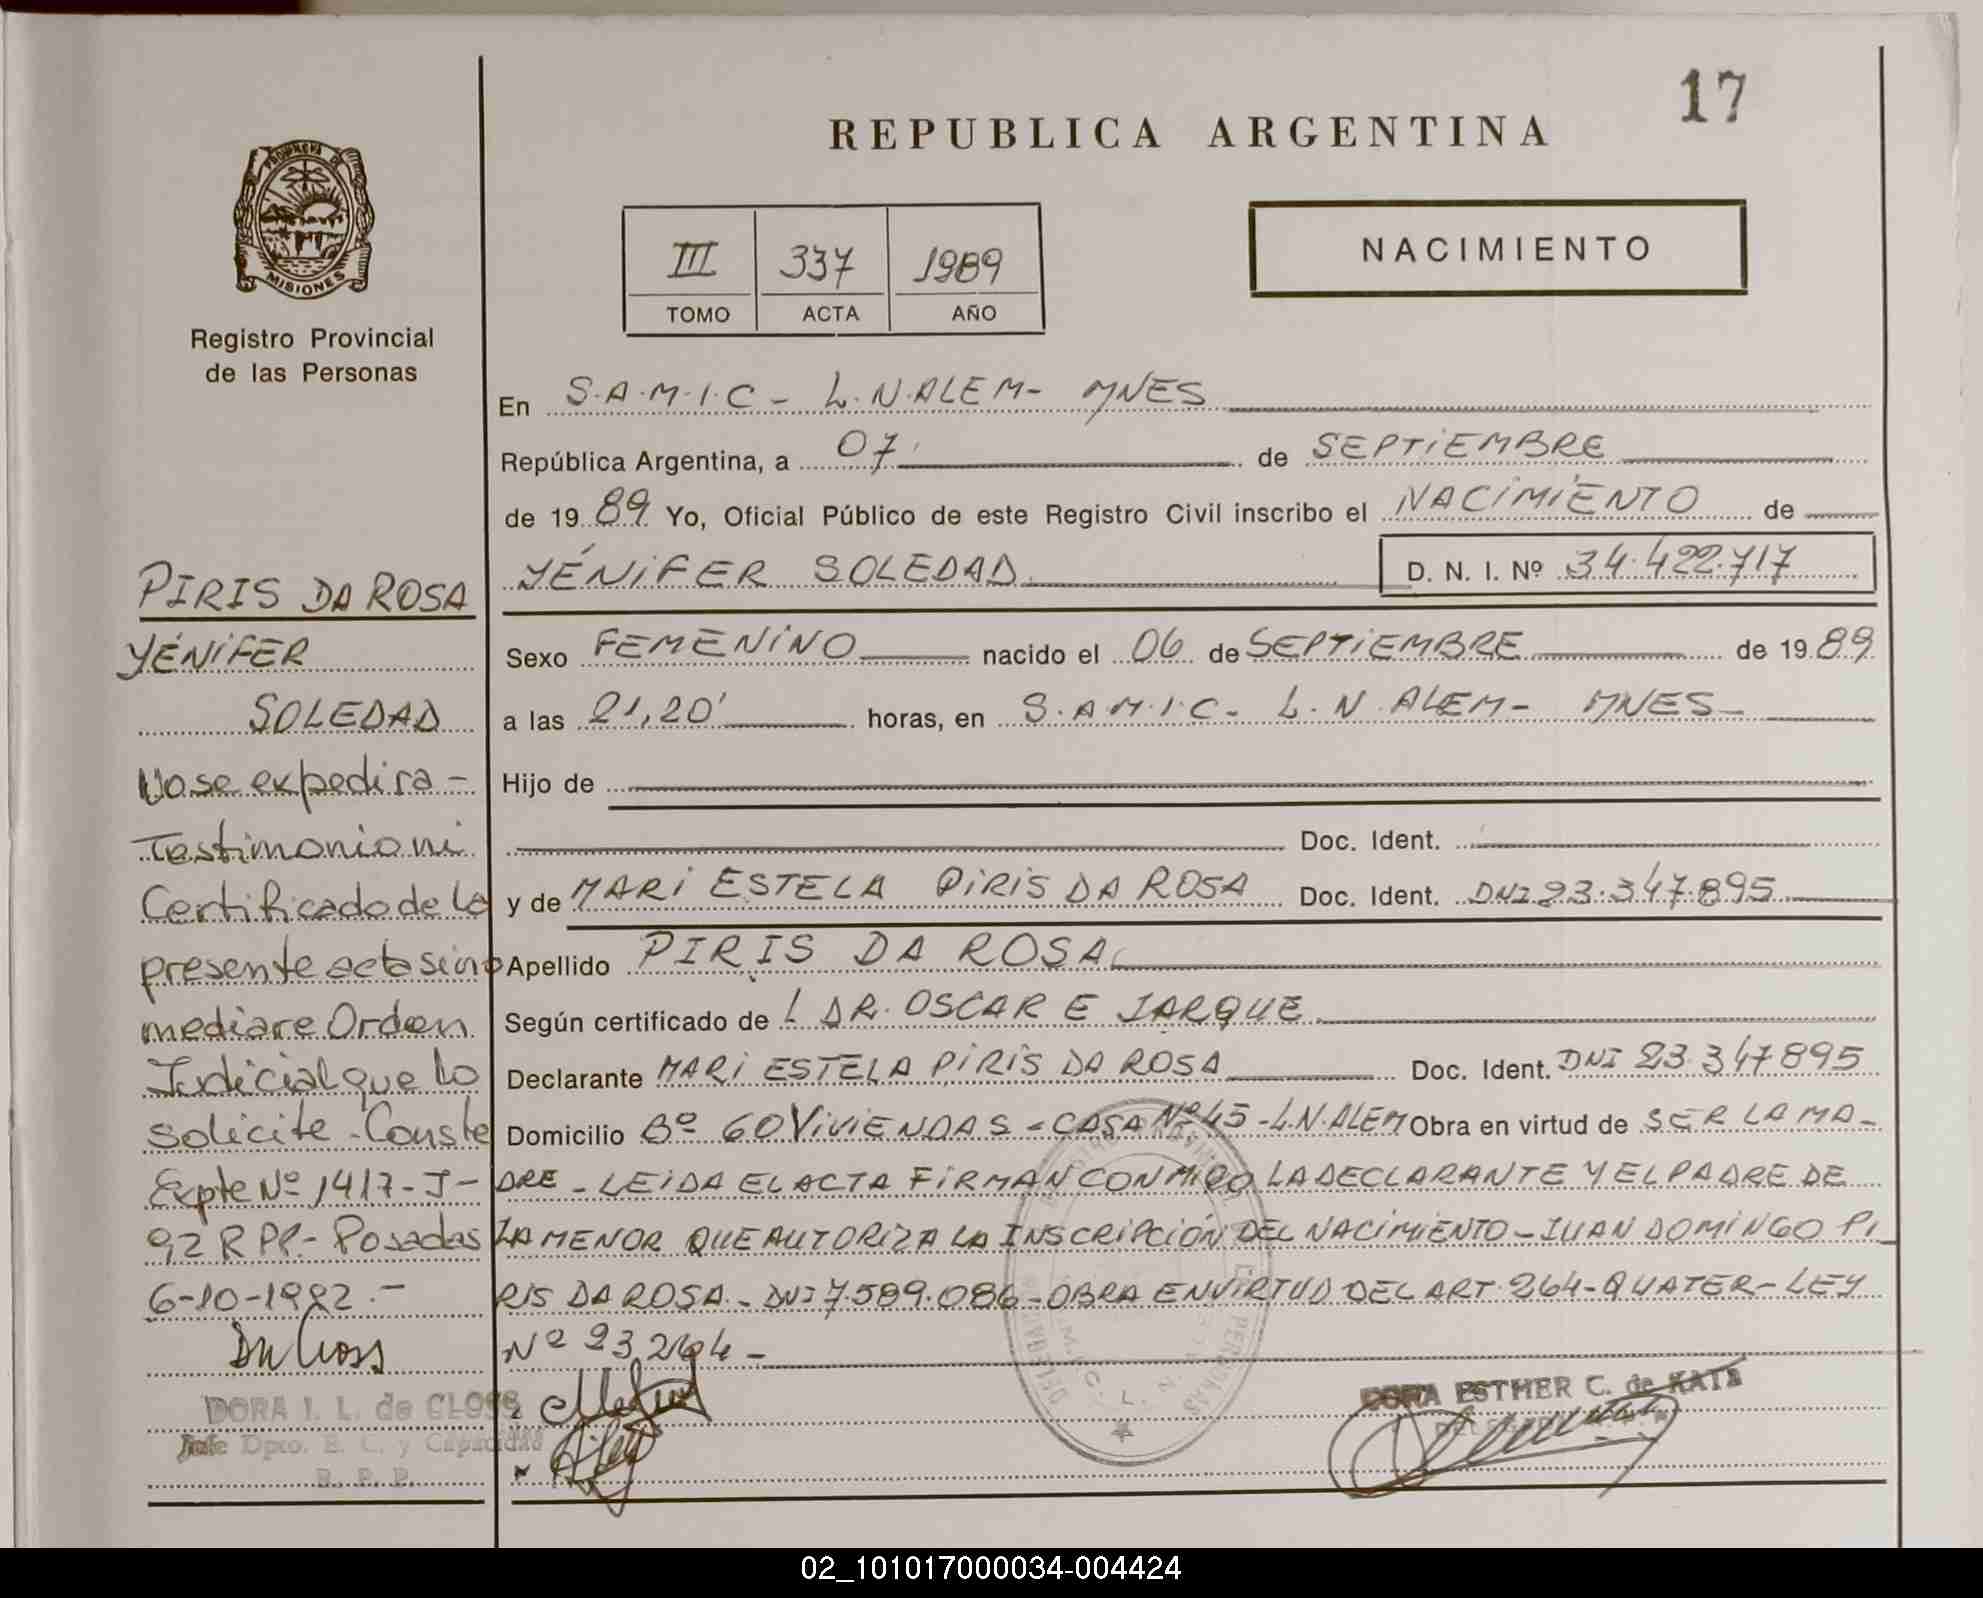 17
REPUBLICA ARGENTINA
PROVINCIA DE
MISIONES
Registro Provincial
de las Personas
III 337 1989
TOMO ACTA AÑO
NACIMIENTO
En S.A.M.I.C - L.N.ALEM - MNES
República Argentina, a 07 de SEPTIEMBRE
de 1989 Yo, Oficial Público de este Registro Civil inscribo el NACIMIENTO de
YÉNIFER SOLEDAD D. N. I. Nº 34.422.717
Sexo FEMENINO nacido el 06 de SEPTIEMBRE de 1989
a las 21,20' horas, en S.A.M.I.C - L.N.ALEM - MNES -
Hijo de
Doc. Ident.
y de MARI ESTELA PIRIS DA ROSA Doc. Ident. DNI 23.347.895
Apellido PIRIS DA ROSA
Según certificado de L DR. OSCAR E JARQUE
Declarante MARI ESTELA PIRIS DA ROSA Doc. Ident. DNI 23.347895
Domicilio Bº 60 VIVIENDAS - CASA Nº 45 - L.N.ALEM Obra en virtud de SER LA MA-
DRE - LEIDA EL ACTA FIRMAN CONMIGO LA DECLARANTE Y EL PADRE DE
LA MENOR QUE AUTORIZA LA INSCRIPCIÓN DEL NACIMIENTO - JUAN DOMINGO PI-
RIS DA ROSA - DNI 7.589.086 - OBRA EN VIRTUD DEL ART. 264 - QUATER - LEY
Nº 23264 -
DORA ESTHER C. de KATZ
PIRIS DA ROSA
YÉNIFER
SOLEDAD
No se expedira -
Testimonio ni
Certificado de la
presente acta si no
mediare Orden
Judicial que lo
solicite - Conste
Expte Nº 1417 - J -
92 R PP. - Posadas
6-10-1992. -
DORA I. L. de CLOSS
Jefe Dpto. E. C. y Capacidad
R. P. P.
02_101017000034-004424